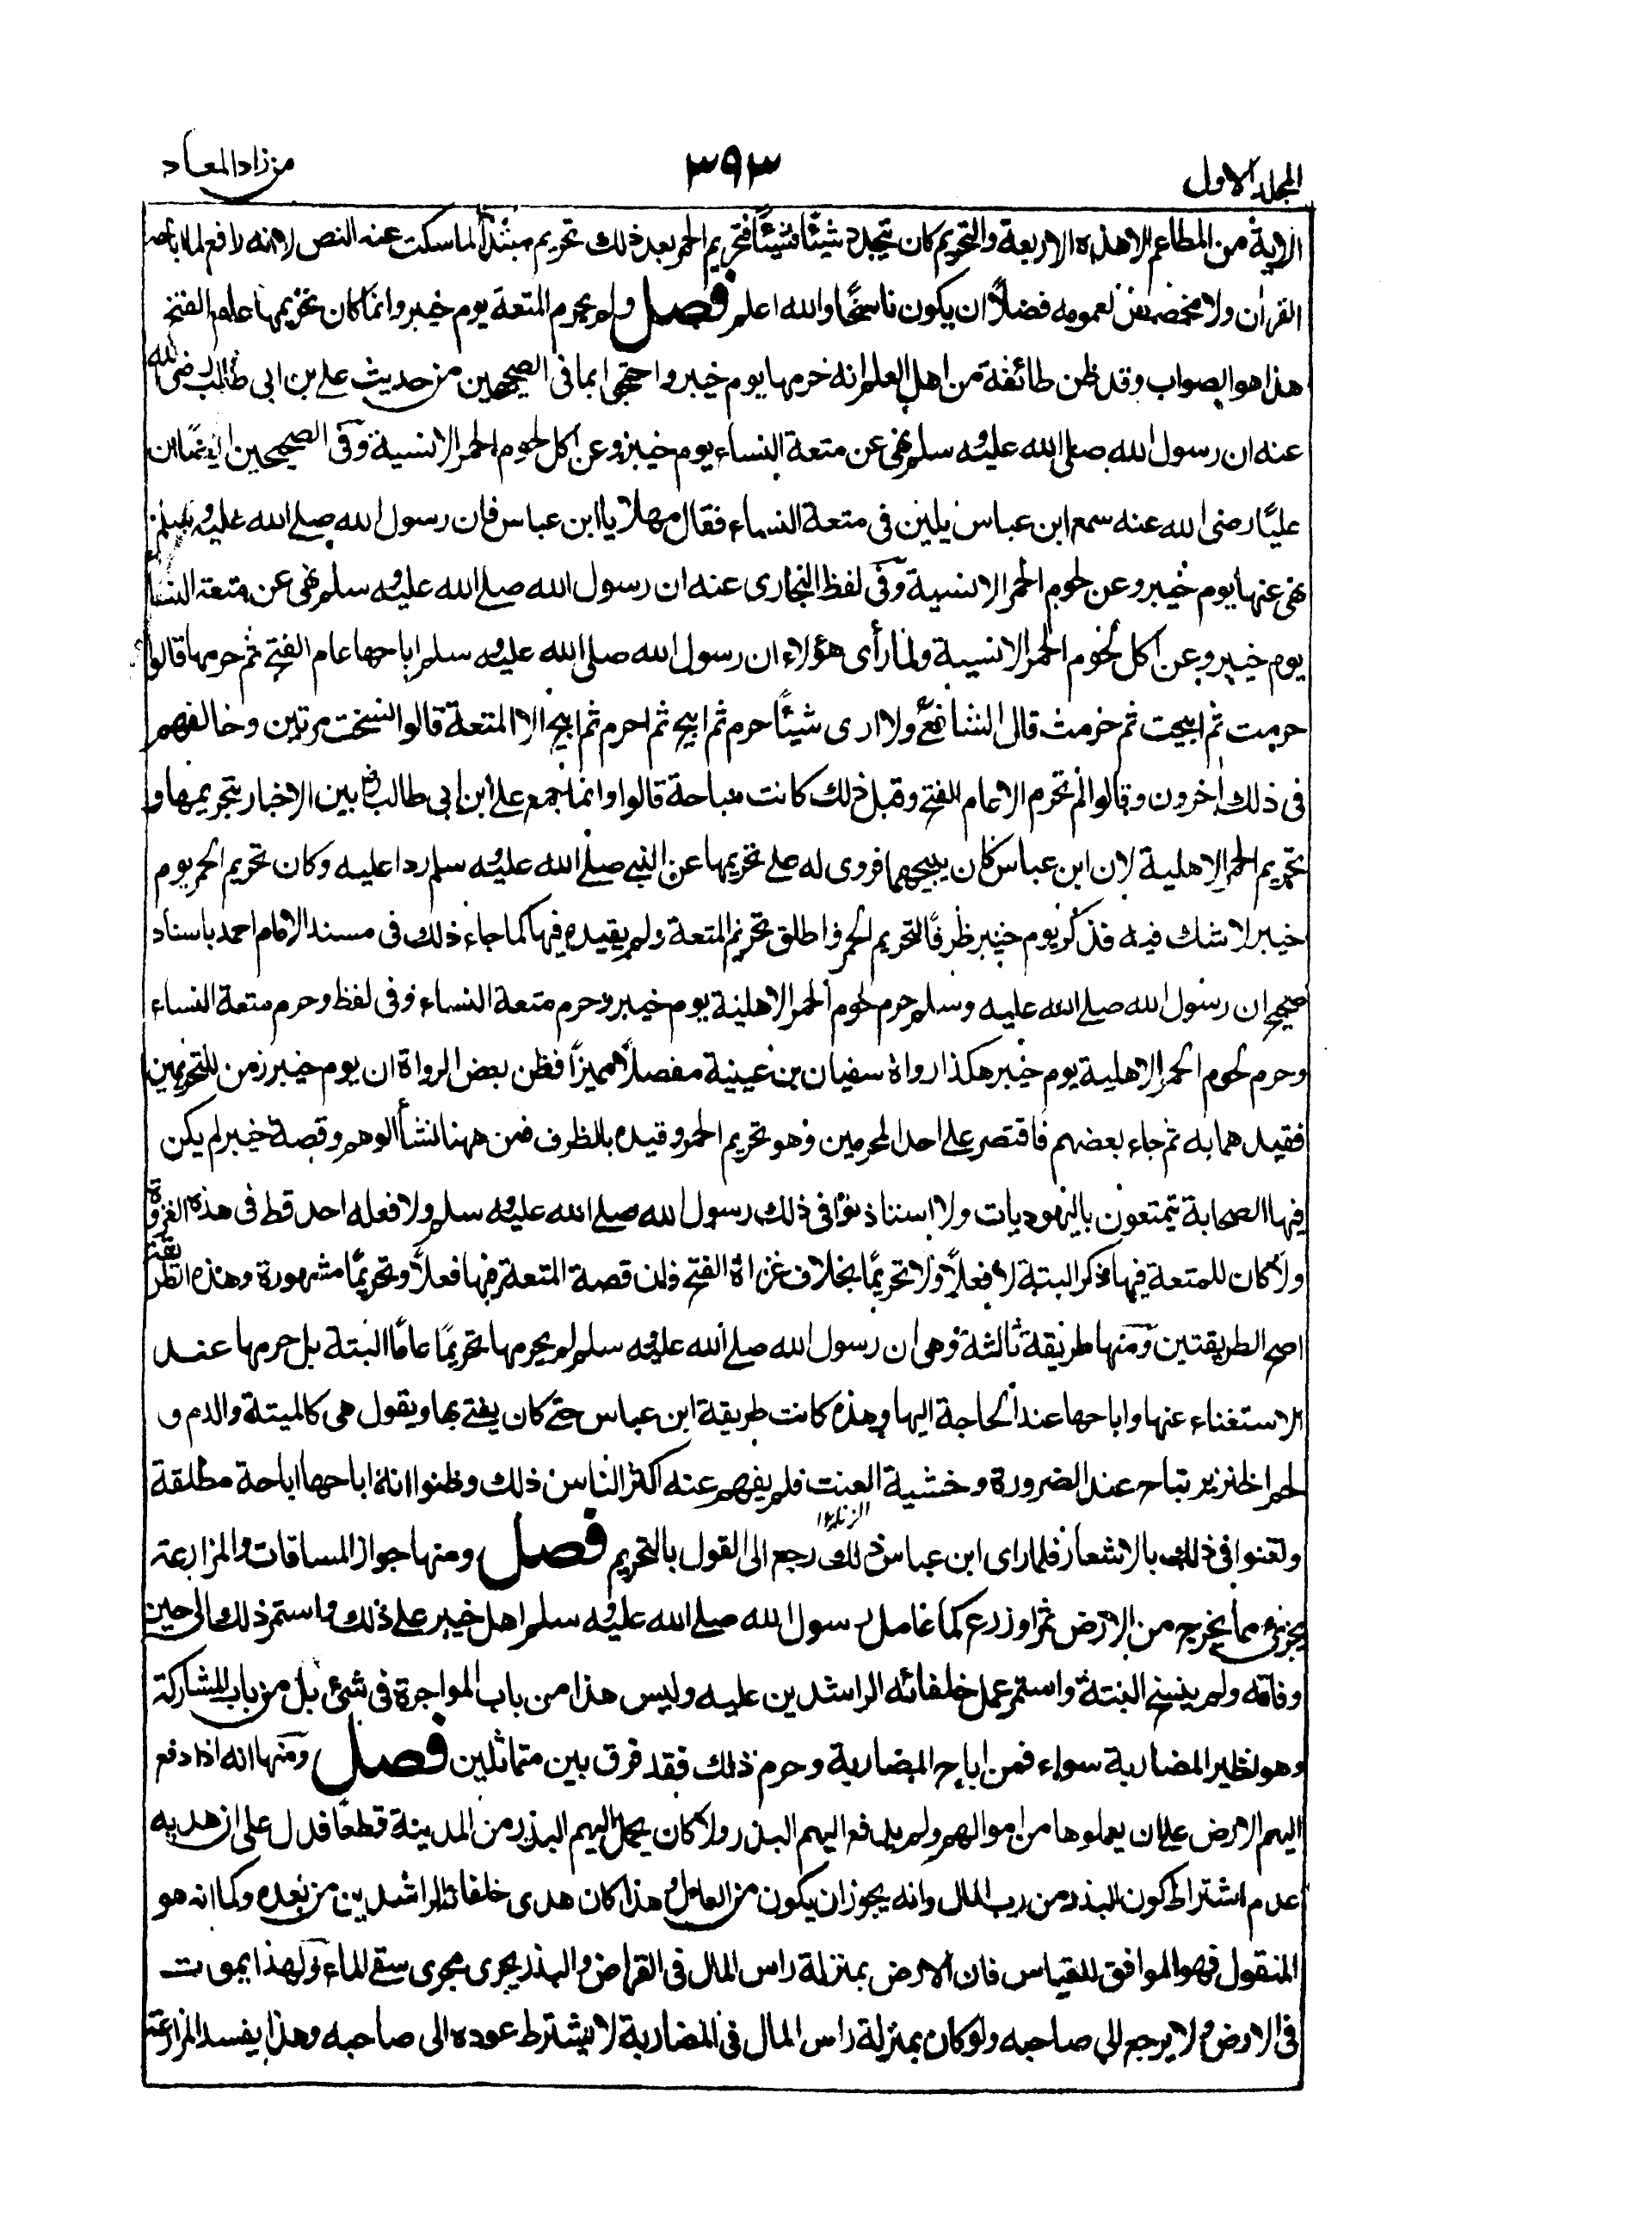 المجلد الاول
٣٩٣
من زاد المعاد
الاية من المطاعم الا هذه الاربعة والتحريم كان يتجدد شيئًا فشيئًا فتحريم الحمر بعد ذلك تحريم مبتدأ لما سكت عنه النص لا انه رافع لما اباحه
القران ولا مخصص لعمومه فضلاً ان يكون ناسخًا والله اعلم فصل ولم يحرم المتعة يوم خيبر وانما كان تحريمها عام الفتح
هذا هو الصواب وقد ظن طائفة من اهل العلم انه حرمها يوم خيبر واحتجوا بما فى الصحيحين من حديث على بن ابى طالب رضى الله
عنه ان رسول الله صلى الله عليه وسلم نهى عن متعة النساء يوم خيبر وعن اكل لحوم الحمر الانسية وفى الصحيحين ايضًا ان
عليًا رضى الله عنه سمع ابن عباس يلين فى متعة النساء فقال مهلا يا ابن عباس فان رسول الله صلى الله عليه وسلم
نهى عنها يوم خيبر وعن لحوم الحمر الانسية وفى لفظ البخارى عنه ان رسول الله صلى الله عليه وسلم نهى عن متعة النساء
يوم خيبر وعن اكل لحوم الحمر الانسية ولما رأى هؤلاء ان رسول الله صلى الله عليه وسلم اباحها عام الفتح ثم حرمها قالوا
حرمت ثم ابيحت ثم حرمت قال الشافعى ولا ارى شيئًا حرم ثم ابيح ثم احرم ثم ابيح الا المتعة قالوا نسخت مرتين وخالفهم
فى ذلك اخرون وقالوا لم تحرم الا عام الفتح وقبل ذلك كانت مباحة قالوا وانما جمع على ابن ابى طالب رض بين الاخبار بتحريمها و
تحريم الحمر الاهلية لان ابن عباس كان يبيحهما فروى له على تحريمها عن النبى صلى الله عليه وسلم ردا عليه وكان تحريم الحمر يوم
خيبر لا شك فيه فذكر يوم خيبر ظرفًا لتحريم الحمر واطلق تحريم المتعة ولم يقيده فيها كما جاء ذلك فى مسند الامام احمد باسناد
صحيح ان رسول الله صلى الله عليه وسلم حرم لحوم الحمر الاهلية يوم خيبر وحرم متعة النساء وفى لفظ وحرم متعة النساء
وحرم لحوم الحمر الاهلية يوم خيبر هكذا رواه سفيان بن عيينة مفصلاً مميزاً فظن بعض الرواة ان يوم خيبر زمن للتحريمين
فقيدهما به ثم جاء بعضهم فاقتصر على احد المحرمين وهو تحريم الحمر وقيده بالظرف فمن ههنا نشأ الوهم وقصة خيبر لم يكن
فيها الصحابة يتمتعون باليهوديات ولا استاذنوا فى ذلك رسول الله صلى الله عليه وسلم ولا فعله احد قط فى هذه الغزوة
ولا كان للمتعة فيها ذكر البتة لا فعلاً ولا تحريمًا بخلاف غزاة الفتح فان قصة المتعة فيها فعلاً وتحريمًا مشهورة وهذه الطريقة
اصح الطريقتين ومنها طريقة ثالثة وهى ان رسول الله صلى الله عليه وسلم لم يحرمها تحريمًا عامًا البتة بل حرمها عند
الاستغناء عنها واباحها عند الحاجة اليها وهذه كانت طريقة ابن عباس حتى كان يفتى بها ويقول هى كالميتة والدم و
لحم الخنزير تباح عند الضرورة وخشية العنت فلم يفهم عنه اكثر الناس ذلك وظنوا انه اباحها اباحة مطلقة
ولغنوا فى ذلك بالاشعار فلما راى ابن عباس ذلك رجع الى القول بالتحريم فصل ومنها جواز المساقات والمزارعة
بجزئ مما يخرج من الارض ثمر او زرع كما عامل رسول الله صلى الله عليه وسلم اهل خيبر على ذلك واستمر ذلك الى حين
وفاته ولم ينسخ البتة واستمر عمل خلفائه الراشدين عليه وليس هذا من باب المواجرة فى شئ بل من باب المشاركة
وهو نظير المضاربة سواء فمن اباح المضاربة وحرم ذلك فقد فرق بين متماثلين فصل ومنها انه اذا دفع
اليهم الارض على ان يعملوها من اموالهم ولم يدفع اليهم البذر ولا كان يحمل اليهم البذر من المدينة قطعًا فدل على ان هديه
عدم اشتراط كون البذر من رب المال وانه يجوز ان يكون من العامل وهذا كان هدى خلفائه الراشدين من بعده وكما انه هو
المنقول فهو الموافق للقياس فان الارض بمنزلة راس المال فى القراض والبذر يجرى مجرى سقى الماء ولهذا يموت
فى الارض ولا يرجع الى صاحبه ولو كان بمنزلة راس المال فى المضاربة لا يشترط عوده الى صاحبه وهذا يفسد المزارعة